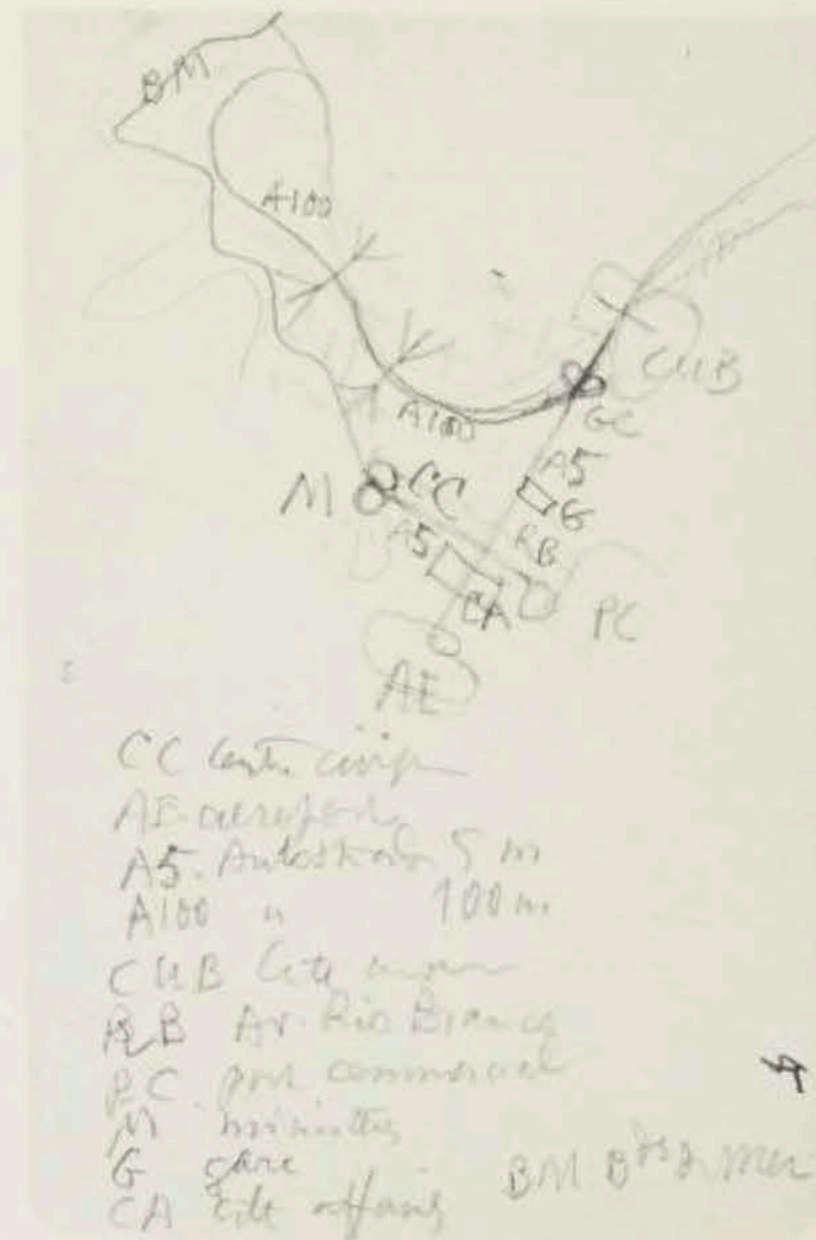 BM
A100
A100
CUB
GC
A5
M CC
G
A5
RB
CA
PC
AE
CC Centre
AE aeroport
A5. Autostrade 5 m
A100 " 100 m.
CUB Cité
RB Av. Rio Branco
PC. port commercial
M ministères
G gare
CA cité affaires
BM B mer